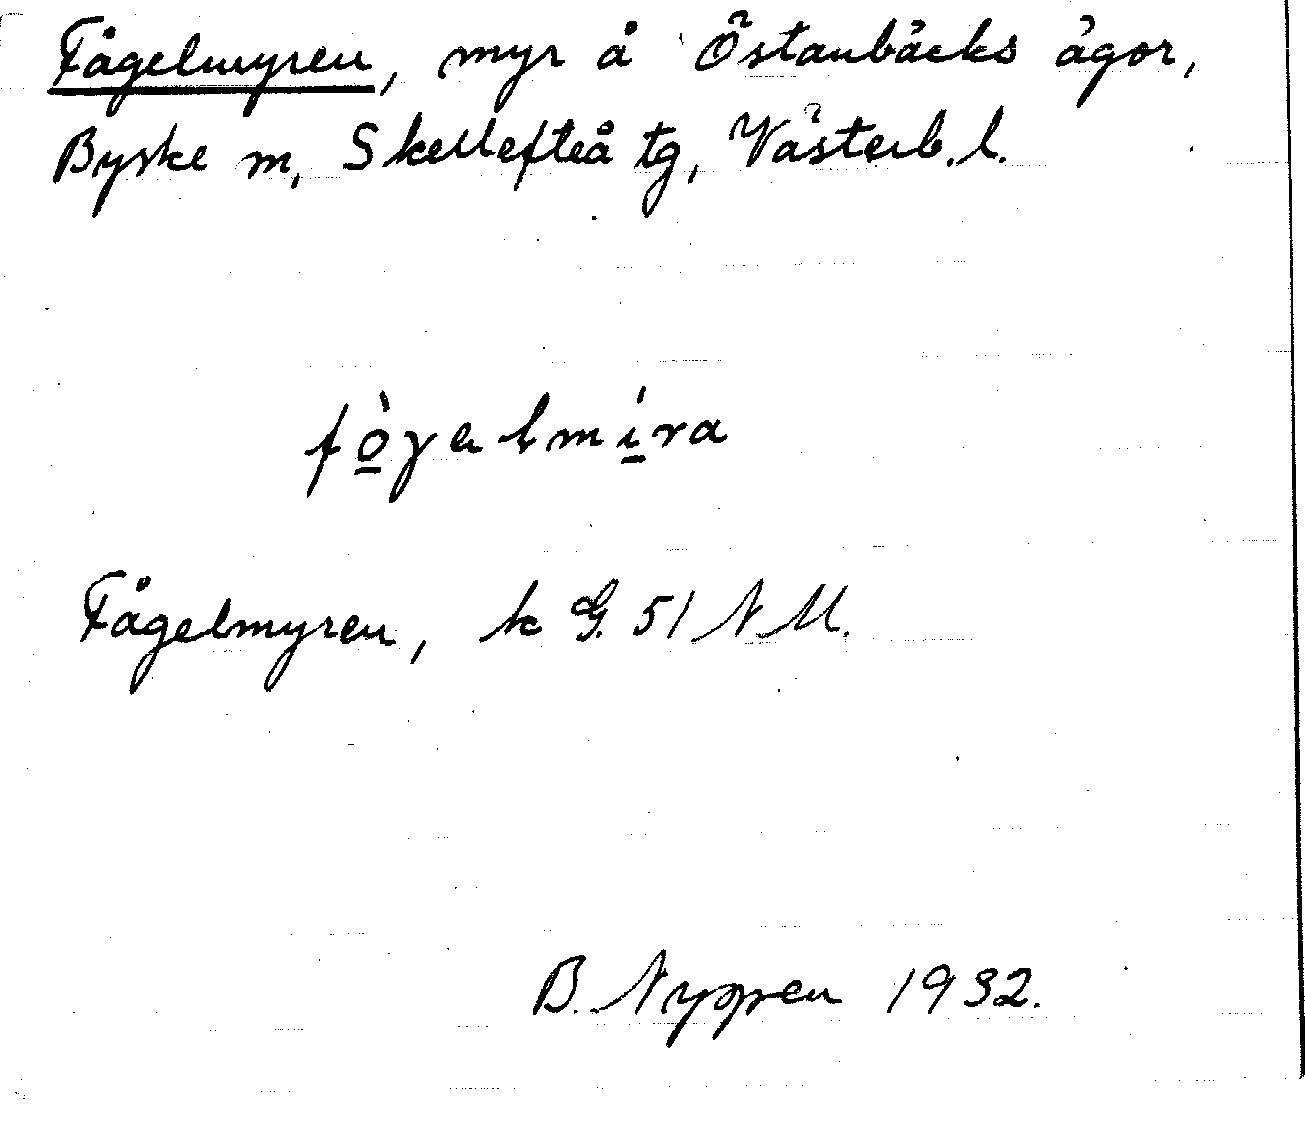 Fågelmyren, myr å Östanbäcks ägor,
Byske sn, Skellefteå tg, Västerb. l.
fò̱γəlmí̱ra
Fågelmyren, k G. 51 N M.
B. Nyppen 1932.